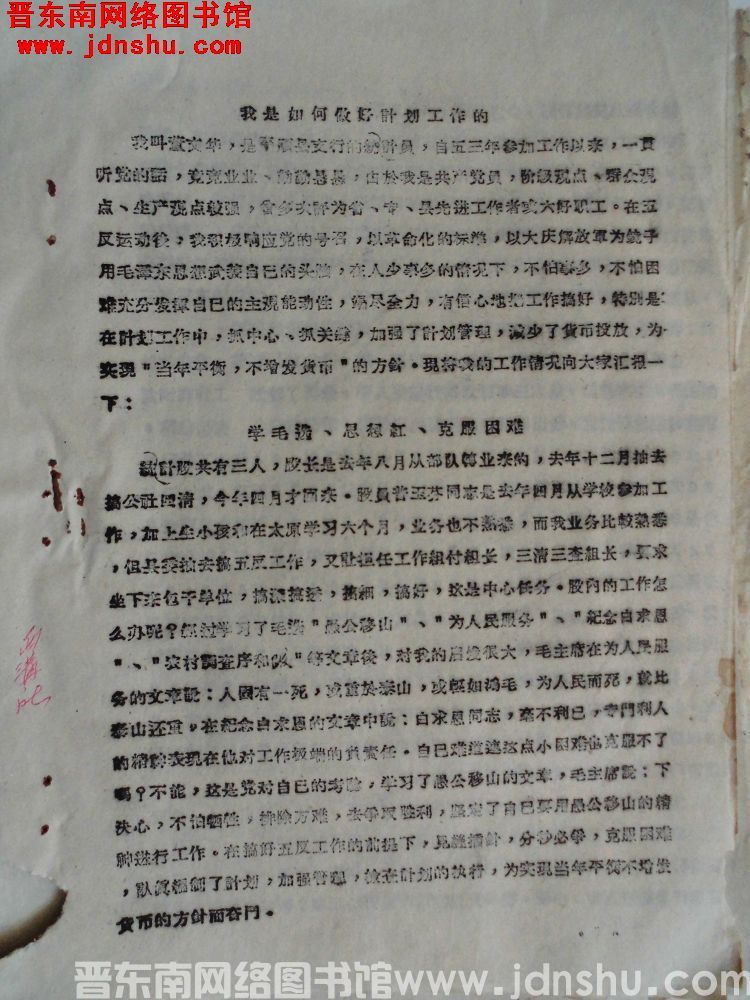 晋东南网络图书馆
www.jdnshu.com
我是如何做好計划工作的
我叫董文华，是平順县支行的統計員，自五三年参加工作以来，一貫
听党的話，兢兢业业、勤勤恳恳，由於我是共产党員，阶級观点、群众观
点、生产观点較强，曾多次評为省、专、县先进工作者或六好职工。在五
反运动後，我积极响应党的号召，以革命化的标准，以大庆解放軍为鏡子
用毛澤东思想武装自己的头脑，在人少事多的情况下，不怕事多，不怕困
难充分发揮自己的主观能动性，竭尽全力，有信心地把工作搞好，特別是
在計划工作中，抓中心、抓关鍵，加强了計划管理，减少了货币投放，为
实現"当年平衡，不增发货币"的方針。現将我的工作情况向大家汇报一
下：
学毛选、思想紅、克服困难
統計股共有三人，股长是去年八月从部队轉业来的，去年十二月抽去
搞公社四清，今年四月才回来。股員 同志是去年四月从学校参加工
作，加上生小孩和在太原学习六个月，业务也不熟悉，而我业务比較熟悉
，但县委抽去搞五反工作，又让担任工作組付組长，三清三查組长，要求
坐下来包干单位，搞深搞透，搞細，搞好，这是中心任务。股內的工作怎
么办呢？經过学习了毛选"愚公移山"、"为人民服务"、"紀念白求恩
"、"农村調查序和跋"等文章後，对我的启发很大，毛主席在为人民服
务的文章說：人固有一死，或重於泰山，或輕如鴻毛，为人民而死，就比
泰山还重。在紀念白求恩的文章中說：白求恩同志，毫不利己，专門利人
的精神表現在他对工作极端的負責任。自己难道連这点小困难也克服不了
嗎？不能，这是党对自己的考驗，学习了愚公移山的文章，毛主席說：下
决心，不怕牺牲，排除万难，去爭取胜利，坚定了自己要用愚公移山的精
神进行工作。在搞好五反工作的前提下，見縫插針，分秒必爭，克服困难
，认真編制了計划，加强管理，检查計划的执行，为实現当年平衡不增发
货币的方針而奋鬥。
晋东南网络图书馆www.jdnshu.com